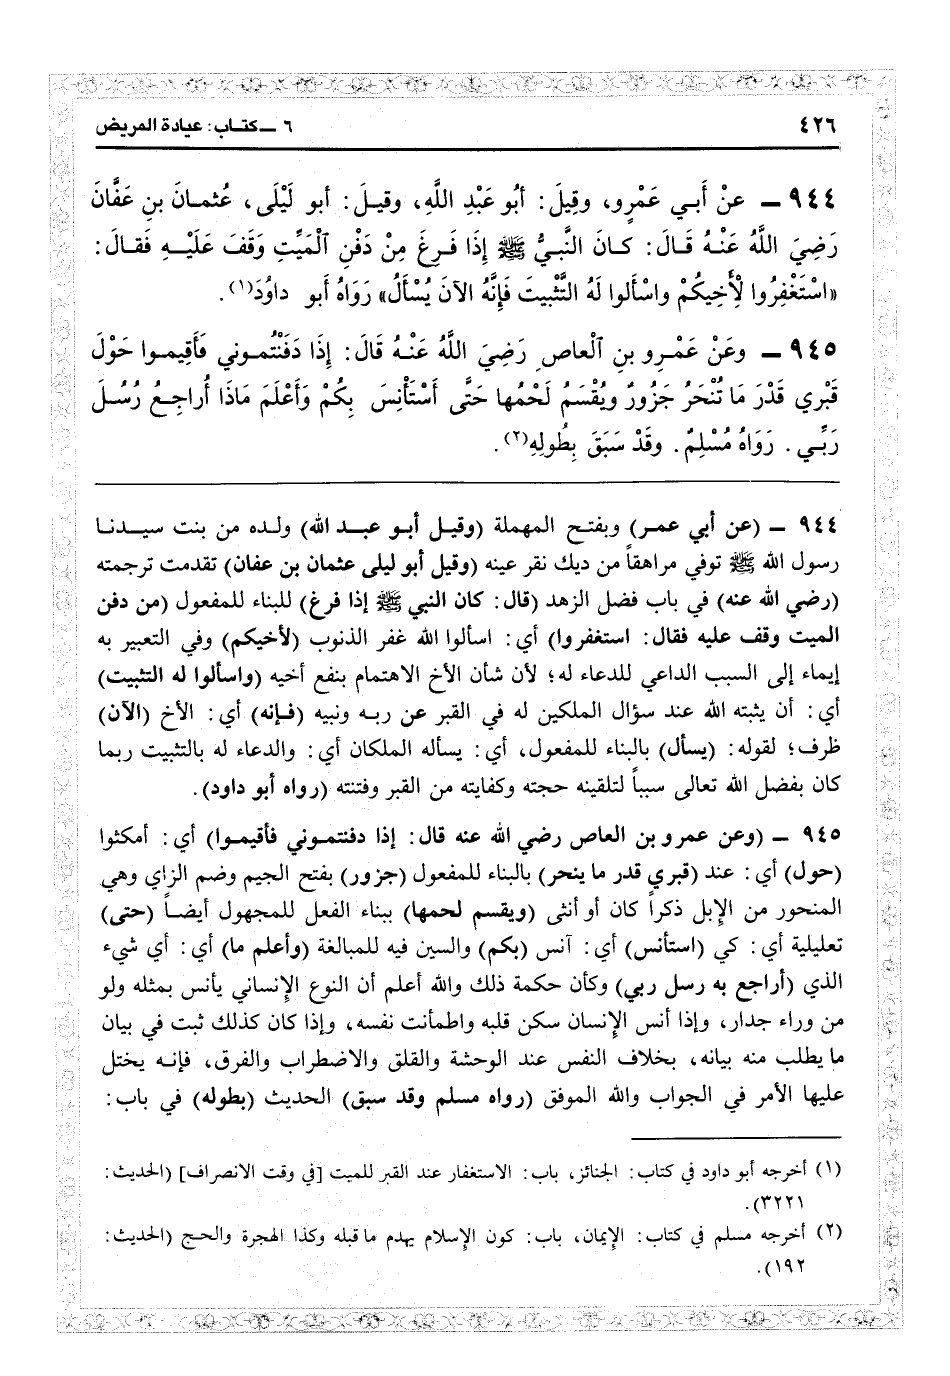 ٤٢٦
٦ ـ كتاب: عيادة المريض
٩٤٤ ـ عنْ أَبي عَمْرٍو، وقِيلَ: أبُو عَبْدِ اللَّهِ، وقيلَ: أبو لَيْلَى، عُثمانَ بنِ عَفَّانَ
رَضِيَ اللَّهُ عَنْهُ قَالَ: كانَ النَّبيُّ ﷺ إِذَا فَرغَ مِنْ دَفْنِ الْمَيِّتِ وَقَفَ عَلَيْهِ فَقالَ:
«اسْتَغْفِرُوا لِأَخِيكُمْ واسْأَلوا لَهُ التَّثْبيتَ فَإِنَّهُ الآنَ يُسْأَلُ» رَوَاهُ أَبو داوُدَ(١).
٩٤٥ ـ وعَنْ عَمْرِو بنِ الْعاصِ رَضِيَ اللَّهُ عَنْهُ قَالَ: إِذَا دَفَنْتُموني فَأَقِيموا حَوْلَ
قَبْرِي قَدْرَ مَا تُنْحَرُ جَزُورٌ ويُقْسَمُ لَحْمُها حَتَّى أَسْتَأْنِسَ بِكُمْ وَأَعْلَمَ مَاذَا أُراجِعُ رُسُلَ
رَبِّي. رَوَاهُ مُسْلِمٌ. وقَدْ سَبَقَ بِطُولِهِ(٢).
٩٤٤ ـ (عن أبي عمر) وبفتح المهملة (وقيل أبو عبد الله) ولده من بنت سيدنا
رسول الله ﷺ توفي مراهقاً من ديك نقر عينه (وقيل أبو ليلى عثمان بن عفان) تقدمت ترجمته
(رضي الله عنه) في باب فضل الزهد (قال: كان النبي ﷺ إذا فرغ) للبناء للمفعول (من دفن
الميت وقف عليه فقال: استغفروا) أي: اسألوا الله غفر الذنوب (لأخيكم) وفي التعبير به
إيماء إلى السبب الداعي للدعاء له؛ لأن شأن الأخ الاهتمام بنفع أخيه (واسألوا له التثبيت)
أي: أن يثبته الله عند سؤال الملكين له في القبر عن ربه ونبيه (فإنه) أي: الأخ (الآن)
ظرف؛ لقوله: (يسأل) بالبناء للمفعول، أي: يسأله الملكان أي: والدعاء له بالتثبيت ربما
كان بفضل الله تعالى سبباً لتلقينه حجته وكفايته من القبر وفتنته (رواه أبو داود).
٩٤٥ ـ (وعن عمرو بن العاص رضي الله عنه قال: إذا دفنتموني فأقيموا) أي: أمكثوا
(حول) أي: عند (قبري قدر ما ينحر) بالبناء للمفعول (جزور) بفتح الجيم وضم الزاي وهي
المنحور من الإبل ذكراً كان أو أنثى (ويقسم لحمها) ببناء الفعل للمجهول أيضاً (حتى)
تعليلية أي: كي (استأنس) أي: آنس (بكم) والسين فيه للمبالغة (وأعلم ما) أي: أي شيء
الذي (أراجع به رسل ربي) وكأن حكمة ذلك والله أعلم أن النوع الإنساني يأنس بمثله ولو
من وراء جدار، وإذا أنس الإنسان سكن قلبه واطمأنت نفسه، وإذا كان كذلك ثبت في بيان
ما يطلب منه بيانه، بخلاف النفس عند الوحشة والقلق والاضطراب والفرق، فإنه يختل
عليها الأمر في الجواب والله الموفق (رواه مسلم وقد سبق) الحديث (بطوله) في باب:
(١) أخرجه أبو داود في كتاب: الجنائز، باب: الاستغفار عند القبر للميت [في وقت الانصراف] (الحديث:
٣٢٢١).
(٢) أخرجه مسلم في كتاب: الإيمان، باب: كون الإسلام يهدم ما قبله وكذا الهجرة والحج (الحديث:
١٩٢).